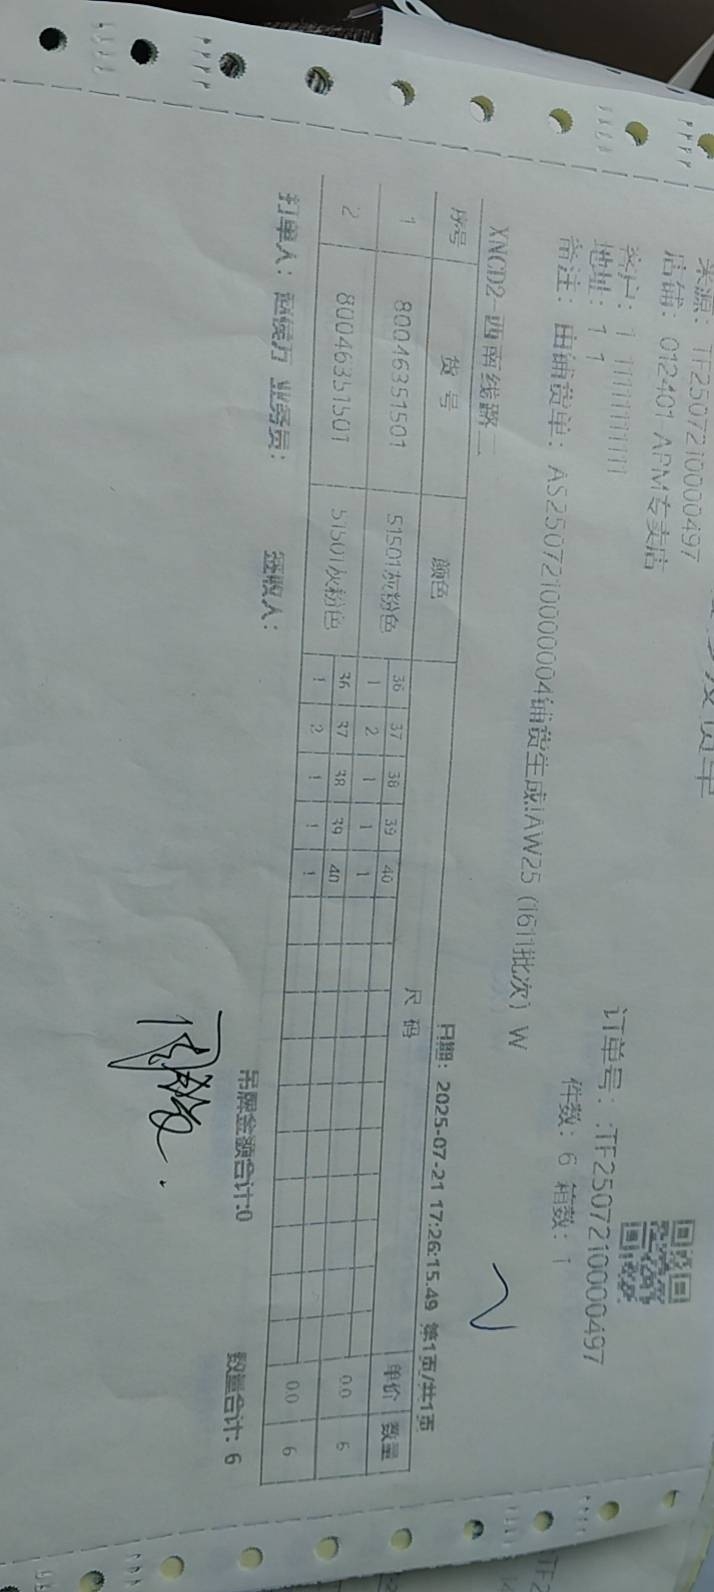 发货单
来源：TF2507210000497
订单号：:TF2507210000497
店铺：012401-APM专卖店
客户：1 11111111111
件数：6 箱数：1
地址：1 1
备注：由铺货单：AS25072100000004铺货生成!AW25（1611批次）W
XNCD2-西南线路二
日期：2025-07-21 17:26:15.49 第1页/共1页
序号 货号 颜色 尺码 单价 数量
36 37 38 39 40
1 80046351501 51501灰粉色 1 2 1 1 1 0.0 6
36 37 38 39 40
2 80046351501 51501灰粉色 1 2 1 1 1 0.0 6
打单人： 业务员： 签收人： 吊牌金额合计:0 数量合计: 6